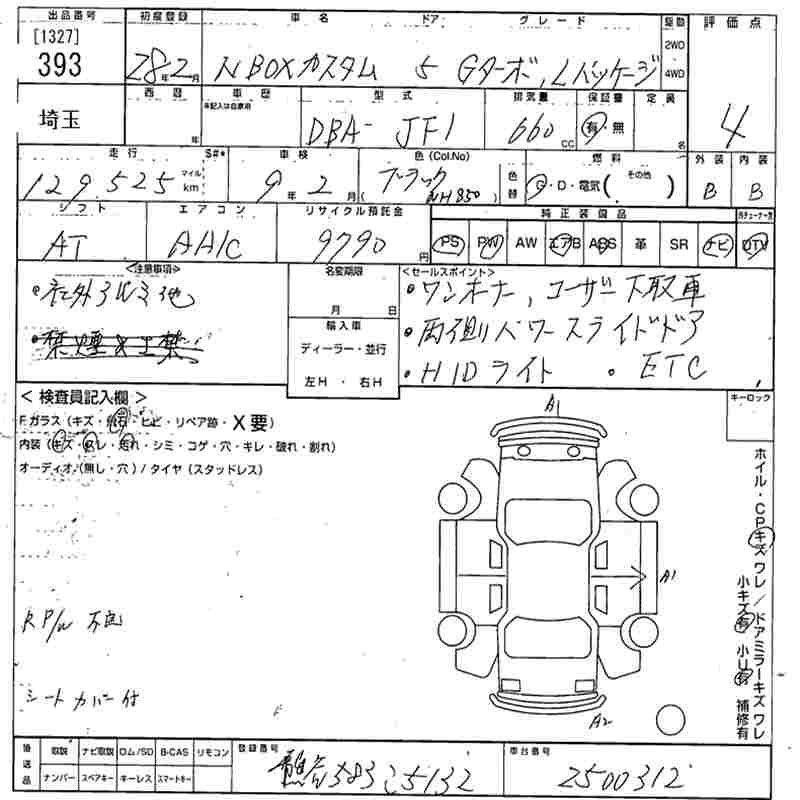 出品番号 初度登録 車名 ドア グレード 駆動 評価点
[1327]
393 28年2月 N BOXカスタム 5 Gターボ,Lパッケージ 2WD 4WD
埼玉 西暦 年 車歴 未記入は自家用 型式 DBA- JF1 排気量 660 CC 保証書 有・無 定装 名 4
走行 S#* 車検 色(Col.No) 燃料 外装 内装
129,525 マイル km 9年2月 ブラック(NH850) 色替 G・D・電気(その他) B B
シフト エアコン リサイクル預託金 純正装備品
AT AAC 9790円 PS PW AW エアB ABS 革 SR ナビ DTV
<注意事項> 名変期限 <セールスポイント>
・社外アルミ他 月 日 ・ワンオーナー、ユーザー下取車
・禁煙 輸入車 ・両側パワースライドドア
ディーラー・並行 ・HIDライト ・ETC
左H・右H
<検査員記入欄> A1 キーロック
Fガラス(キズ・飛石・ヒビ・リペア跡・X要)
内装(キズ・スレ・汚れ・シミ・コゲ・穴・キレ・破れ・割れ)
オーディオ(無し・穴)/タイヤ(スタッドレス)
ホイル・CPキズワレ/ドアミラーキズワレ
小キズ有 小U有 補修有
A1
RP/w 不良
シートカバー付
A2
後送品 取説 ナビ取説 ロム/SD B-CAS リモコン 登録番号 車台番号
ナンバー スペアキー キーレス スマートキー 熊谷583 5132 2500312